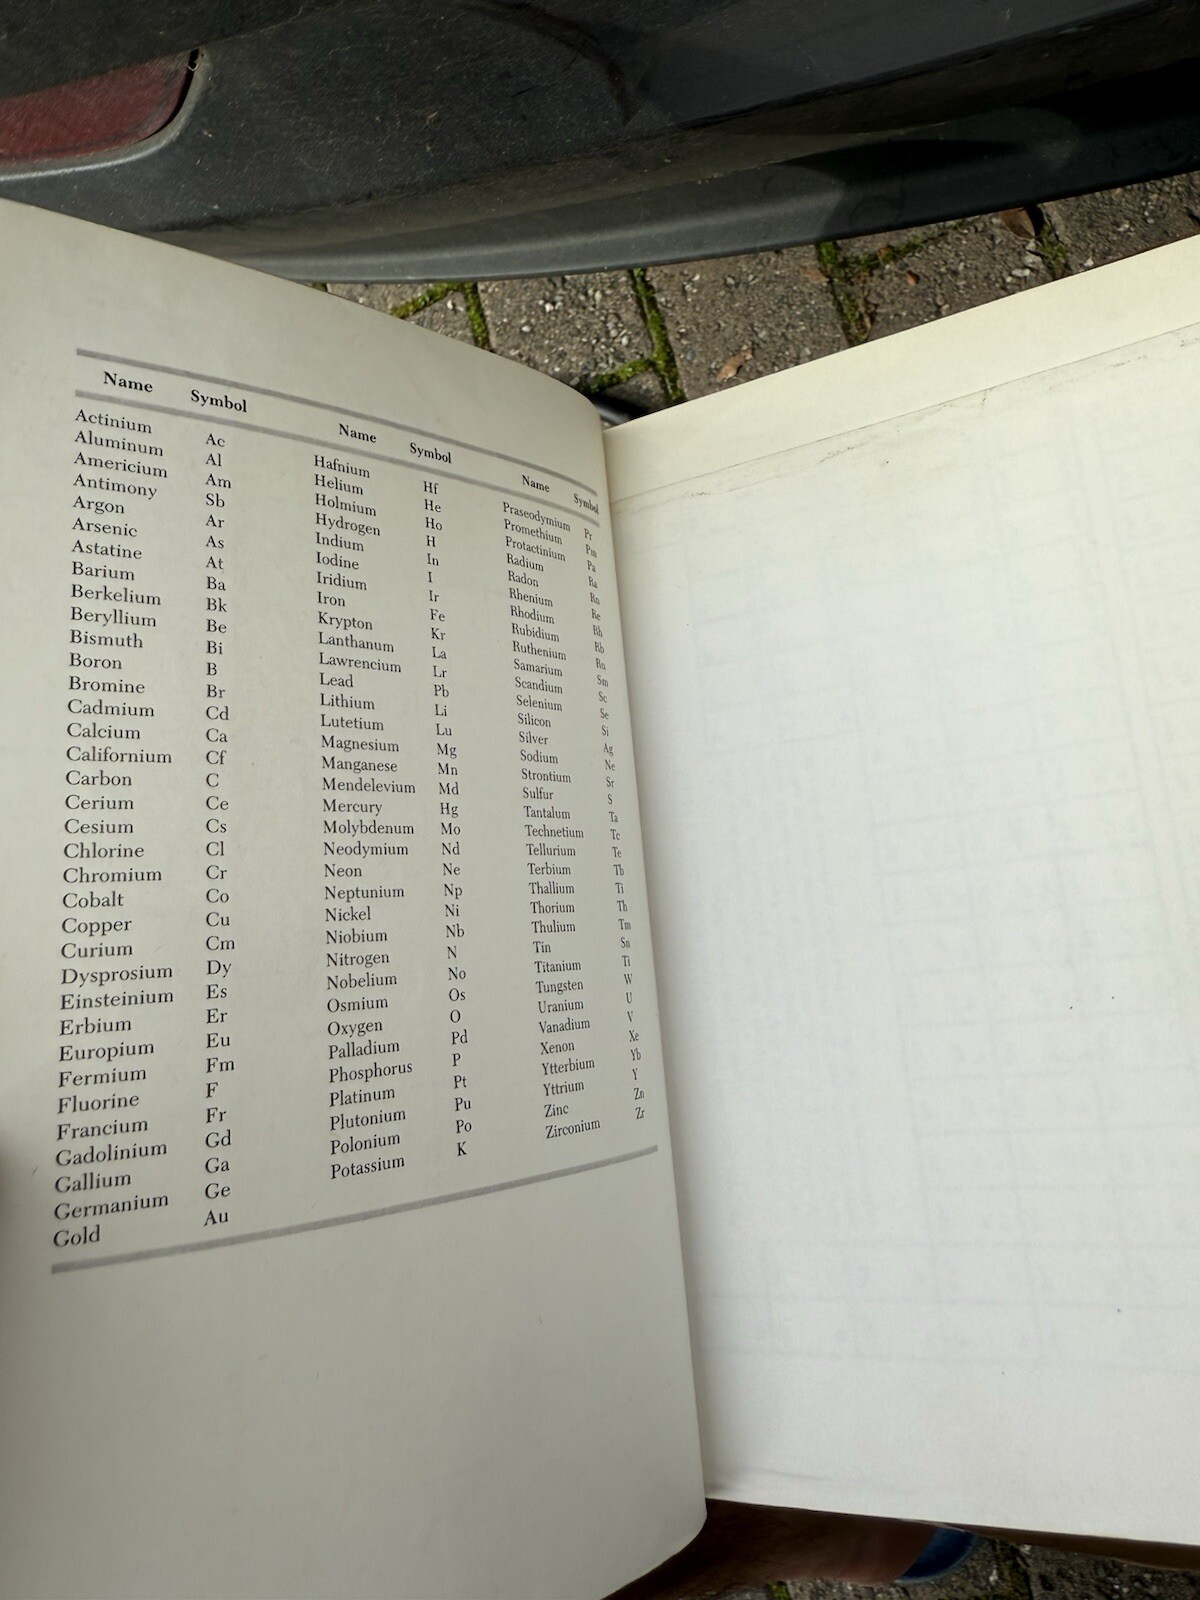 Name Symbol
Actinium Ac
Aluminum Al
Americium Am
Antimony Sb
Argon Ar
Arsenic As
Astatine At
Barium Ba
Berkelium Bk
Beryllium Be
Bismuth Bi
Boron B
Bromine Br
Cadmium Cd
Calcium Ca
Californium Cf
Carbon C
Cerium Ce
Cesium Cs
Chlorine Cl
Chromium Cr
Cobalt Co
Copper Cu
Curium Cm
Dysprosium Dy
Einsteinium Es
Erbium Er
Europium Eu
Fermium Fm
Fluorine F
Francium Fr
Gadolinium Gd
Gallium Ga
Germanium Ge
Gold Au
Name Symbol
Hafnium Hf
Helium He
Holmium Ho
Hydrogen H
Indium In
Iodine I
Iridium Ir
Iron Fe
Krypton Kr
Lanthanum La
Lawrencium Lr
Lead Pb
Lithium Li
Lutetium Lu
Magnesium Mg
Manganese Mn
Mendelevium Md
Mercury Hg
Molybdenum Mo
Neodymium Nd
Neon Ne
Neptunium Np
Nickel Ni
Niobium Nb
Nitrogen N
Nobelium No
Osmium Os
Oxygen O
Palladium Pd
Phosphorus P
Platinum Pt
Plutonium Pu
Polonium Po
Potassium K
Name Symbol
Praseodymium Pr
Promethium Pm
Protactinium Pa
Radium Ra
Radon Rn
Rhenium Re
Rhodium Rh
Rubidium Rb
Ruthenium Ru
Samarium Sm
Scandium Sc
Selenium Se
Silicon Si
Silver Ag
Sodium Ne
Strontium Sr
Sulfur S
Tantalum Ta
Technetium Tc
Tellurium Te
Terbium Tb
Thallium Ti
Thorium Th
Thulium Tm
Tin Sn
Titanium Ti
Tungsten W
Uranium U
Vanadium V
Xenon Xe
Ytterbium Yb
Yttrium Y
Zinc Zn
Zirconium Zr